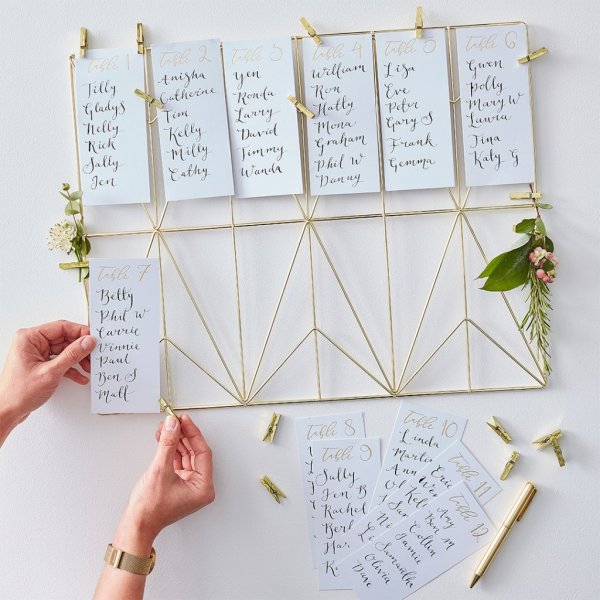 Table 1
Tilly
Gladys
Nelly
Rick
Sally
Jen
Table 2
Anisha
Catherine
Tim
Kelly
Milly
Cathy
Table 3
Yen
Ronda
Larry
David
Timmy
Wanda
Table 4
William
Ron
Hatty
Mona
Graham
Phil W
Danny
Table 5
Lisa
Eve
Peter
Gary S
Frank
Gemma
Table 6
Gwen
Polly
Mary W
Lauria
Tina
Katy G
Table 7
Betty
Phil W
Carrie
Vinnie
Paul
Ben S
Matt
Table 8
Table 9
Sally
Jen B
Rachel
Table 10
Linda
Ann
Table 11
Eric
Table 12
Amy
Ben M
Jamie
Samantha
Olivia
Dave